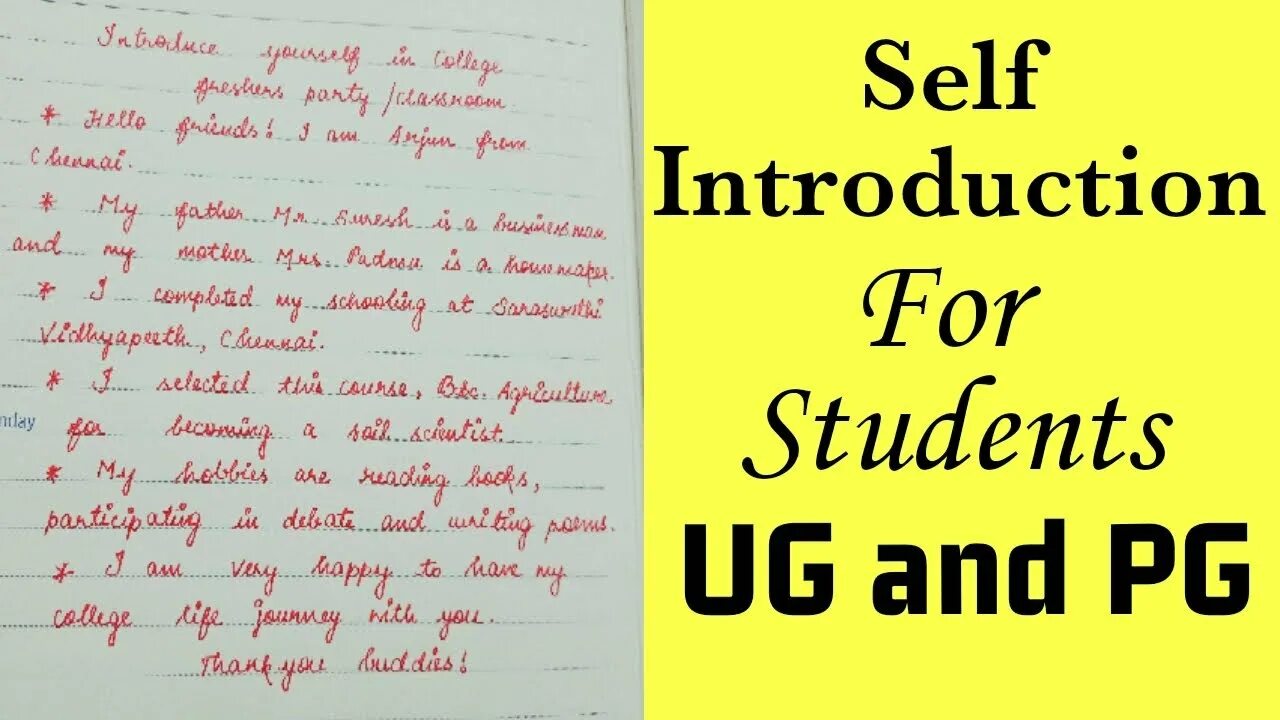 Introduce yourself in College
freshers party /classroom
* Hello friends! I am Arjun from
Chennai.
* My father Mr. Suresh is a businessman
and my mother Mrs. Padma is a homemaker.
* I completed my schooling at Saraswathi
Vidhyapeeth, Chennai.
* I selected this course, Bsc. Agriculture
for becoming a soil scientist.
nday
* My hobbies are reading books,
participating in debate and writing poems.
* I am very happy to have my
college life journey with you.
Thank you buddies!
Self
Introduction
For
Students
UG and PG